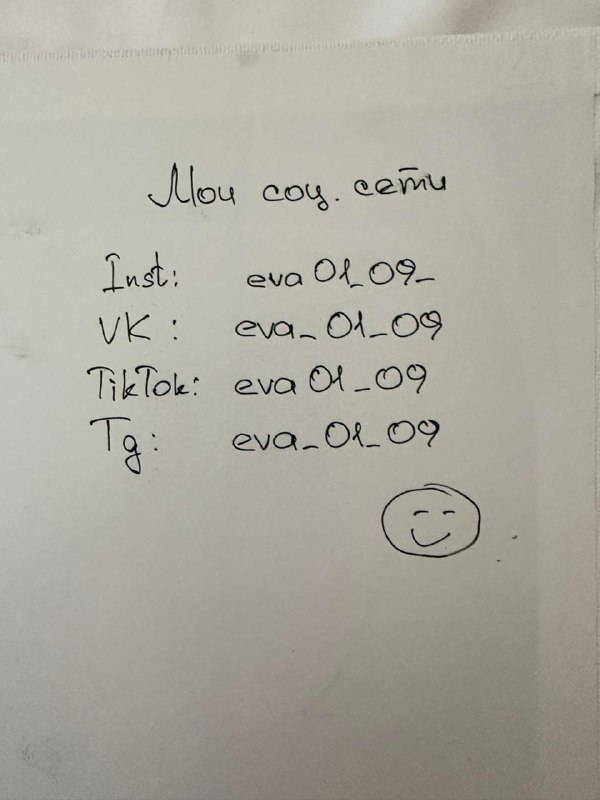 Мои соц. сети
Inst: eva01_09_
VK: eva_01_09
TikTok: eva01_09
Tg: eva_01_09